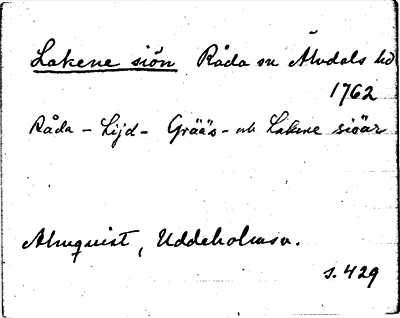 Lakene siön Råda sn Älvdals hd
1762
Råda - Lijd - Grääs - och Lakene siöar
Almquist, Uddeholmsv.
s. 429